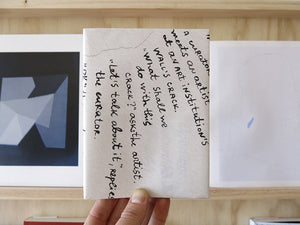 A CURATOR
MEETS AN ARTIST
AT AN ART INSTITUTION'S
WALL'S CRACK.
"What shall we
do with this
crack?" asks the artist.
"Let's talk about it", replies
the curator.